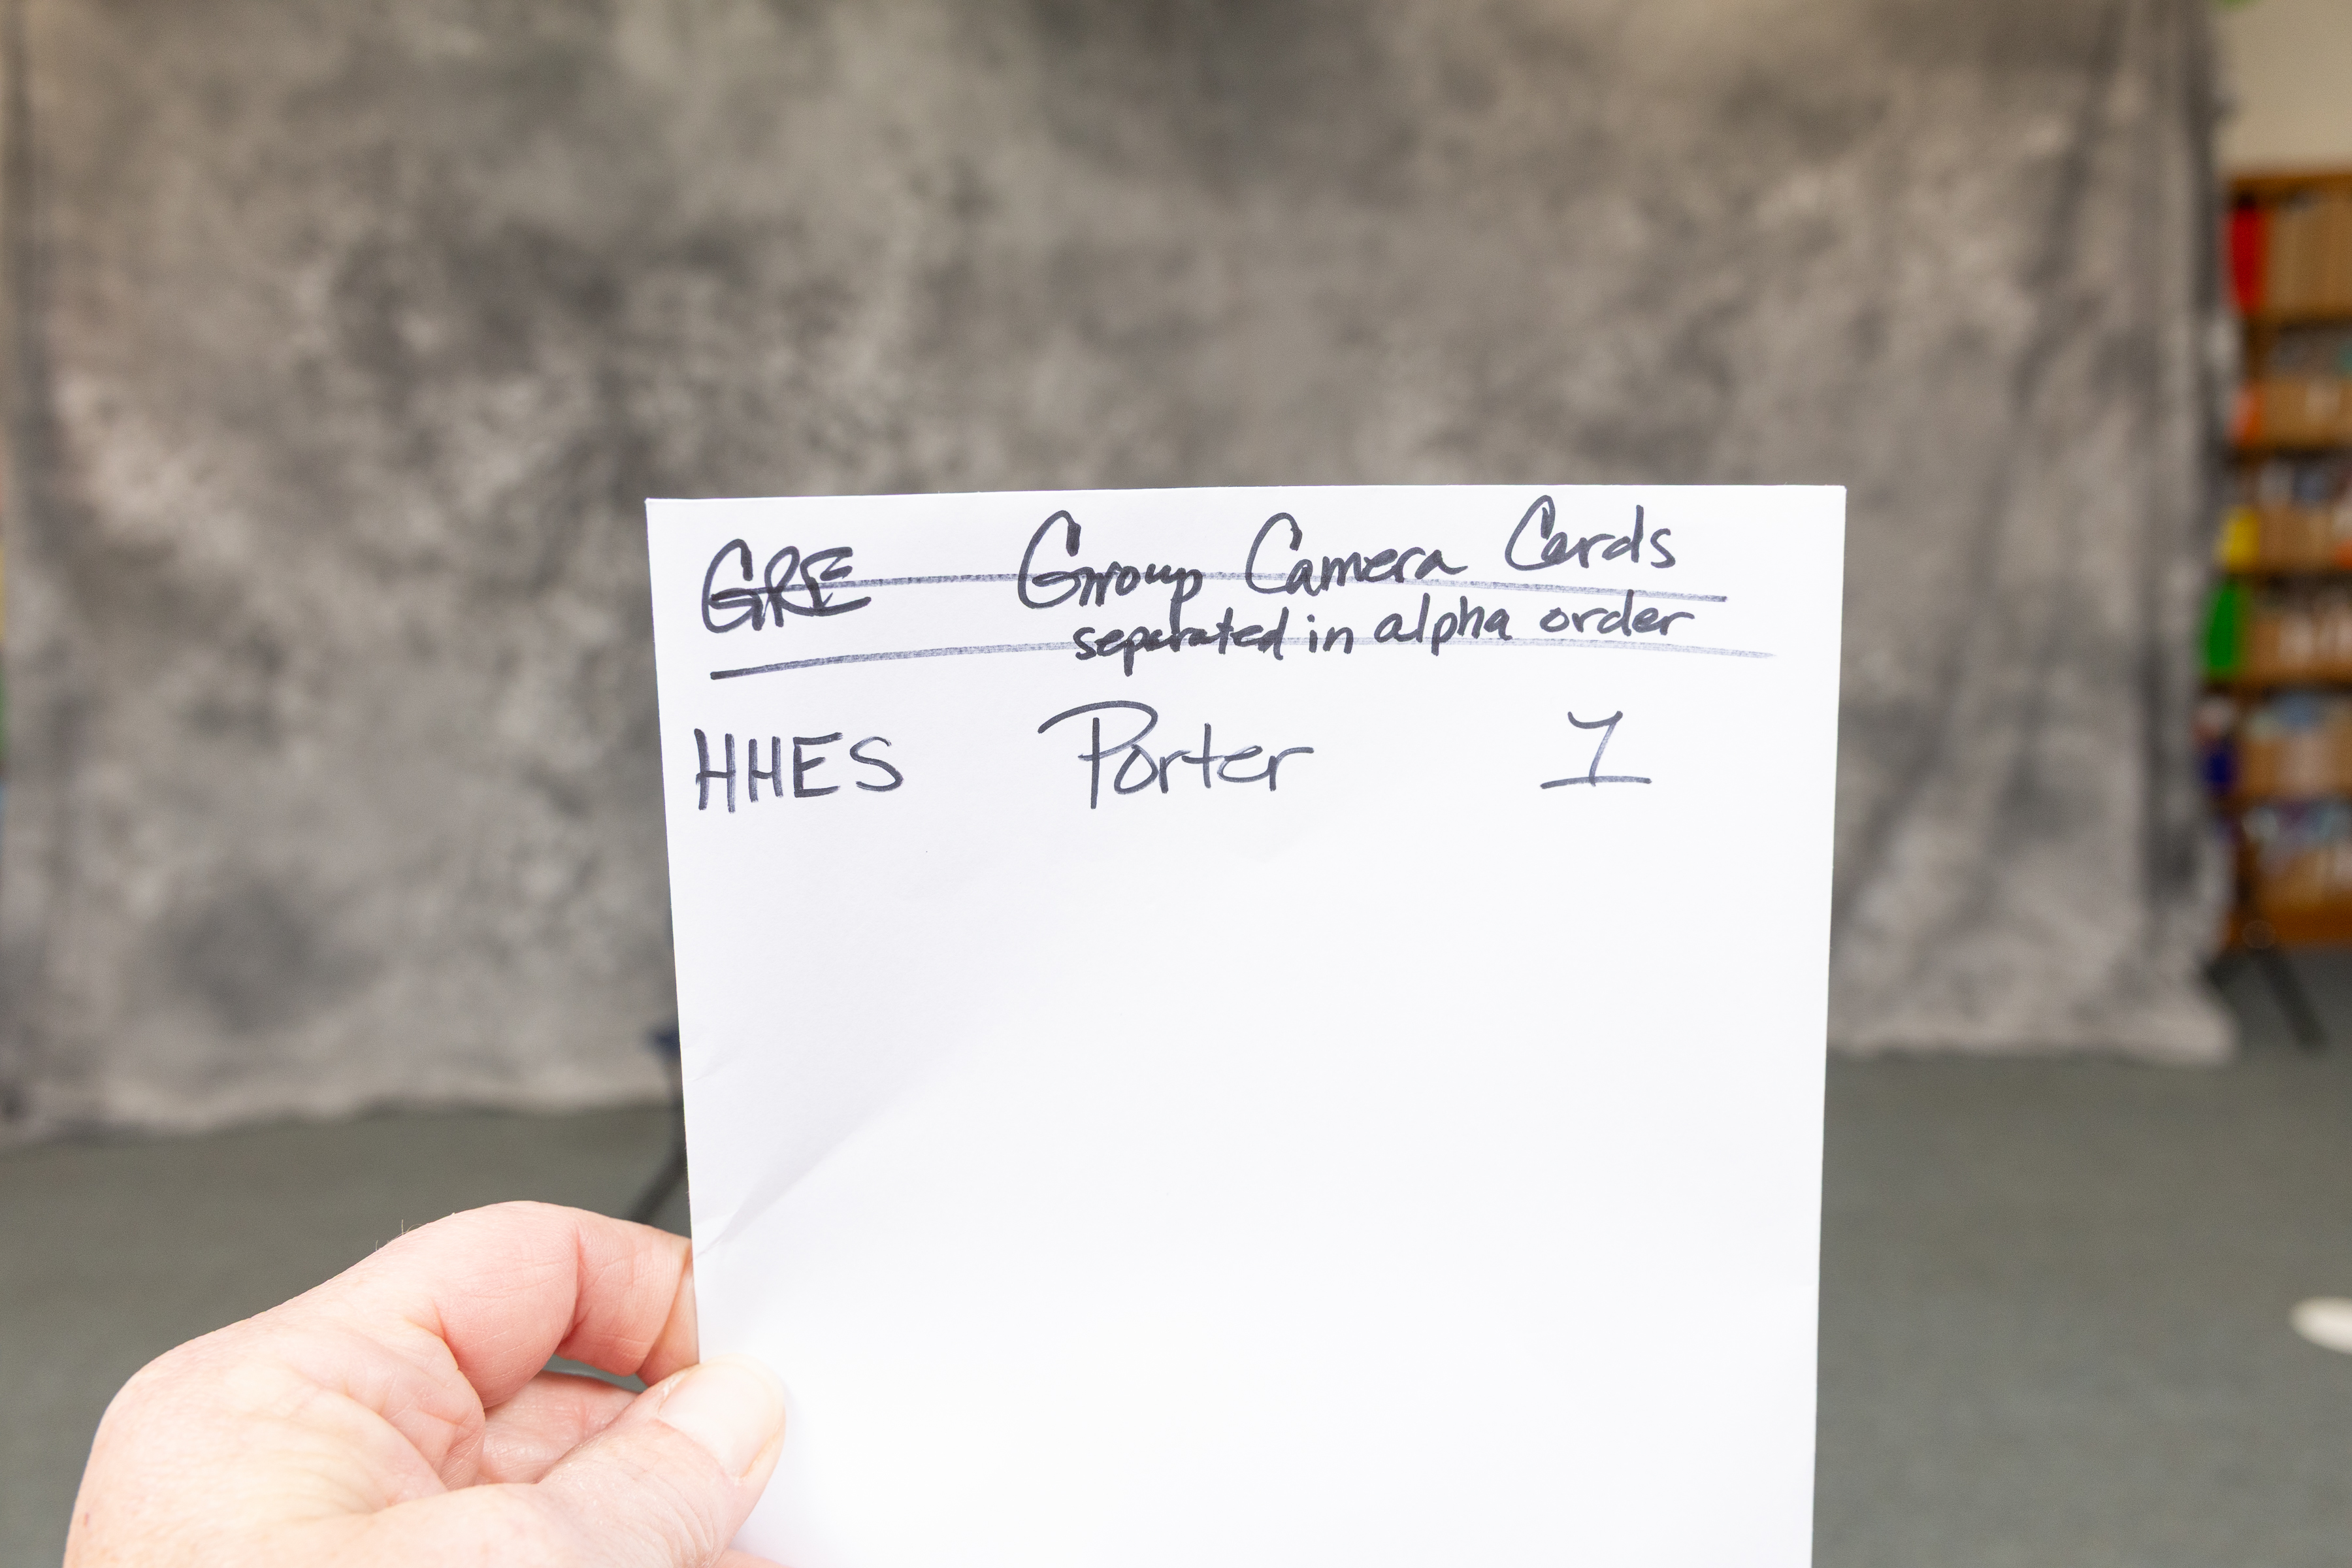 GRE Group Camera Cards
separated in alpha order
HHES Porter 1